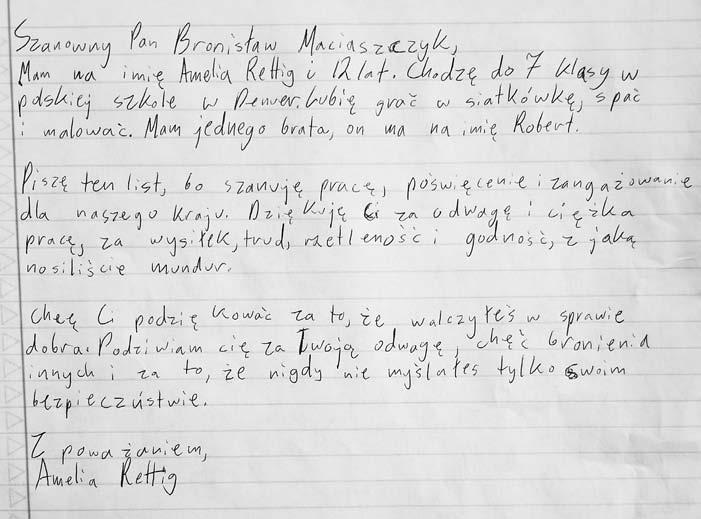 Szanowny Pan Bronisław Maciaszczyk,
Mam na imię Amelia Rettig i 12 lat. Chodzę do 7 klasy w
polskiej szkole w Denver. Lubię grać w siatkówkę, spać
i malować. Mam jednego brata, on ma na imię Robert.
Piszę ten list, bo szanuję pracę, poświęcenie i zangażowanie
dla naszego kraju. Dziękuję Ci za odwagę i ciężka
pracę, za wysiłek, trud, rzetleność i godność, z jaką
nosiliście mundur.
Chcę Ci podziękować za to, że walczyłeś w sprawie
dobra. Podziwiam cię za Twoją odwagę, chęć bronienia
innych i za to, że nigdy nie myślałes tylko swoim
bezpieczústwie.
Z poważaniem,
Amelia Rettig